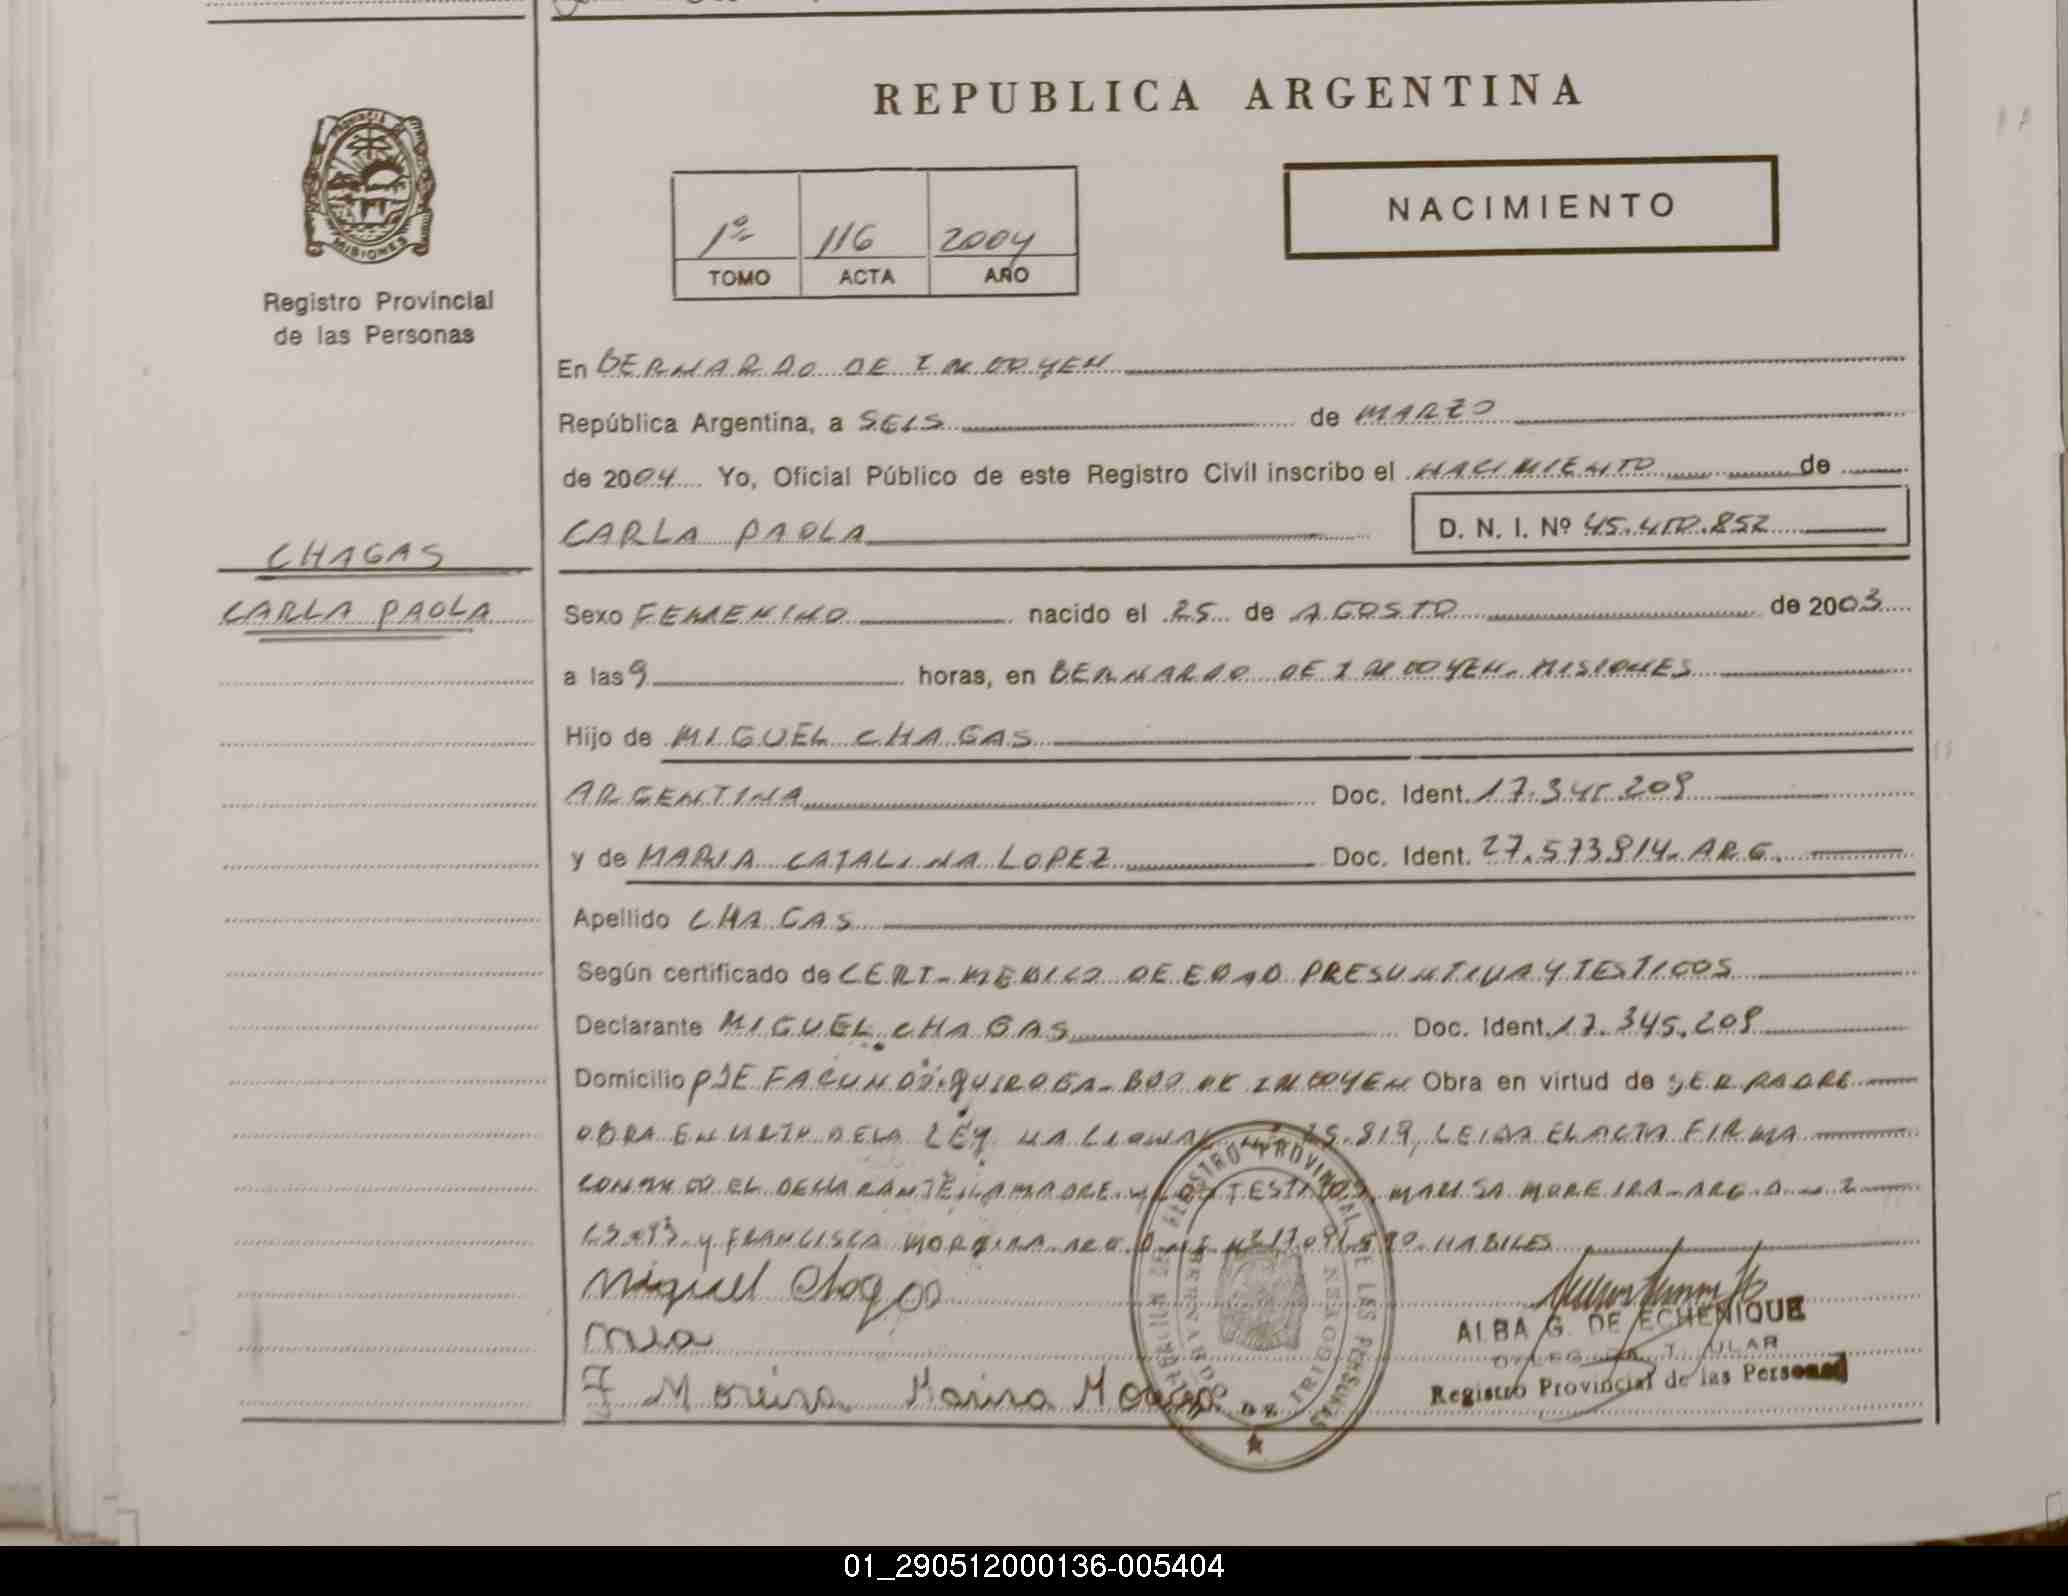 REPUBLICA ARGENTINA
PROVINCIA DE
MISIONES
Registro Provincial
de las Personas
NACIMIENTO
1º 116 2004
TOMO ACTA AÑO
En BERNARDO DE IRIGOYEN
República Argentina, a SEIS de MARZO
de 2004 Yo, Oficial Público de este Registro Civil inscribo el NACIMIENTO de
CARLA PAOLA D. N. I. Nº 45.410.852
CHAGAS
CARLA PAOLA
Sexo FEMENINO nacido el 25 de AGOSTO de 2003
a las 9 horas, en BERNARDO DE IRIGOYEN-MISIONES
Hijo de MIGUEL CHAGAS
ARGENTINA Doc. Ident. 17.345.209
y de MARIA CATALINA LOPEZ Doc. Ident. 27.573.814-ARG.
Apellido CHAGAS
Según certificado de CERT-MEDICO DE EDAD PRESUNTIVA Y TESTIGOS
Declarante MIGUEL CHAGAS Doc. Ident. 17.345.209
Domicilio PJE FACUNDO QUIROGA-BDO DE IRIGOYEN Obra en virtud de SER PADRE
OBRA EN DE LA LEY NACIONAL 25.819, LEIDA EL ACTA FIRMA
CONMIGO EL DECLARANTE, LA MADRE Y LOS TESTIGOS MARISA MOREIRA-ARG
Y FRANCISCA MOREIRA ARG HABILES
Miguel Chagas
F Moreira Marisa
ALBA G. DE ECHENIQUE
Registro Provincial de las Personas
REGISTRO PROVINCIAL DE LAS PERSONAS
BERNARDO DE IRIGOYEN
01_290512000136-005404